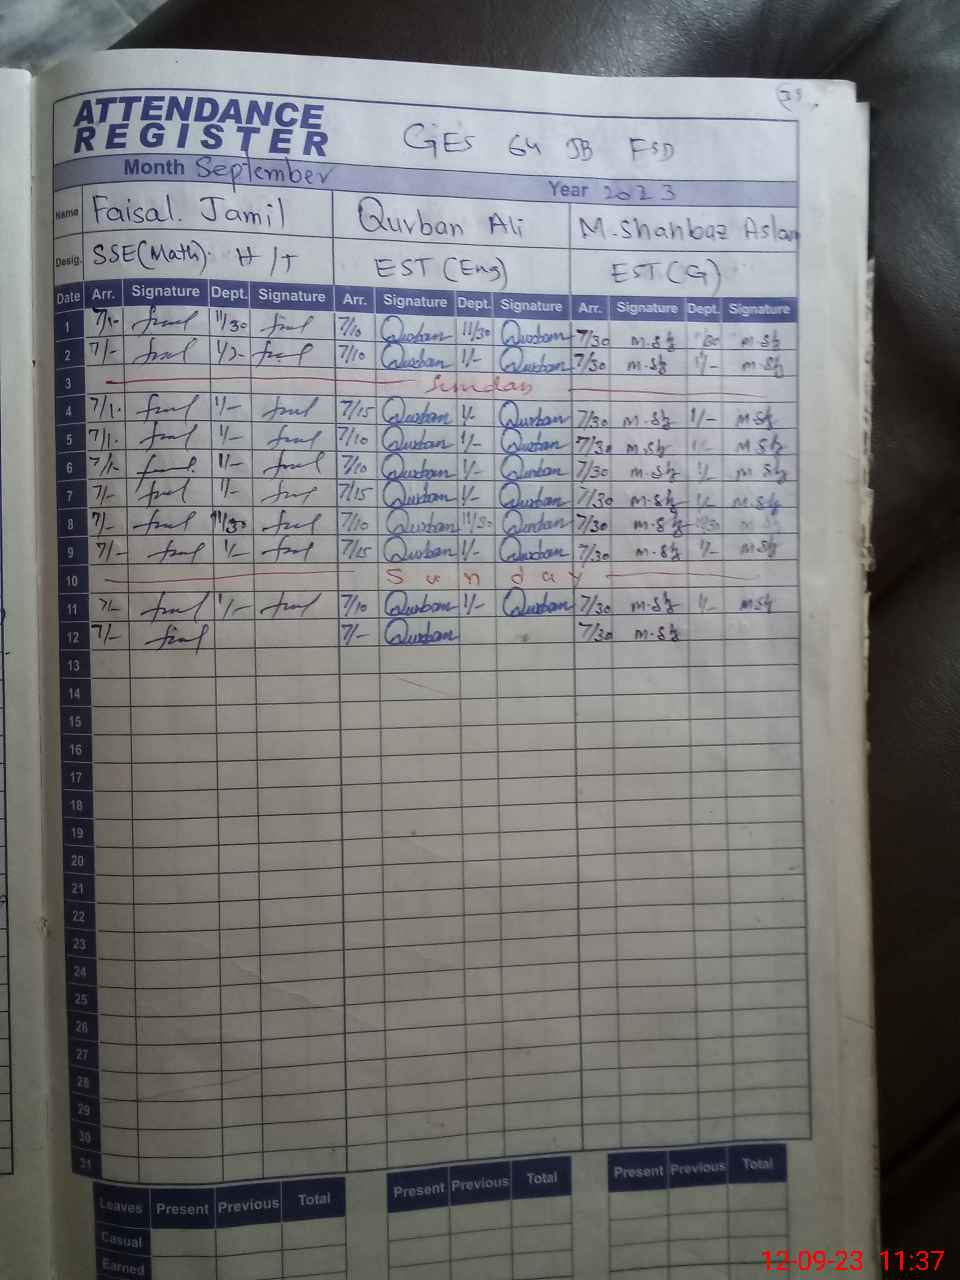 39
ATTENDANCE
REGISTER
GES 64 JB FSD
Month September
Year 2023
Name Faisal. Jamil Qurban Ali M. Shahbaz Aslam
Desig. SSE(Math). H/T EST (Eng) EST (G)
Date Arr. Signature Dept. Signature Arr. Signature Dept. Signature Arr. Signature Dept. Signature
1 7/- 11/30 7/10 Qurban 11/30 Qurban 7/30 m.Sh 30 m.Sh
2 7/- 1/- 7/10 Qurban 1/- Qurban 7/30 m.Sh 1/- m.Sh
3 Sunday
4 7/- 1/- 7/15 Qurban 1/- Qurban 7/30 m.Sh 1/- m Sh
5 7/- 1/- 7/10 Qurban 1/- Qurban 7/30 m.Sh m Sh
6 7/- 1/- 7/10 Qurban 1/- Qurban 7/30 m.Sh 1/- m Sh
7 7/- 1/- 7/15 Qurban 1/- Qurban 7/30 m.Sh m.Sh
8 7/- 11/30 7/10 Qurban 11/30 Qurban 7/30 m.Sh 11/30 m Sh
9 7/- 1/- 7/15 Qurban 1/- Qurban 7/30 m.Sh 1/- m Sh
10 Sunday
11 7/- 1/- 7/10 Qurban 1/- Qurban 7/30 m.Sh 1/- m Sh
12 7/- 7/- Qurban 7/30 m.Sh
13
14
15
16
17
18
19
20
21
22
23
24
25
26
27
28
29
30
31
Leaves Present Previous Total Present Previous Total Present Previous Total
Casual
Earned
12-09-23 11:37